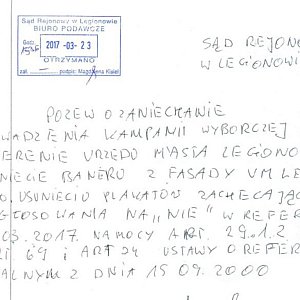 Sąd Rejonowy w Legionowie
BIURO PODAWCZE
Godz.
2017 -03- 23
OTRZYMANO
zał. podpis: Magdalena Kisiel
SĄD REJONO
W LEGIONOWI
POZEW O ZANIECHANIE
WADZENIA KAMPANII WYBORCZEJ
ERENIE URZĘDU MIASTA LEGIONO
NIĘCIE BANERU Z FASADY UM LE
O USUNIĘCIU PLAKATÓW ZACHĘCAJĄC
GŁOSOWANIA NA „NIE" W REFER
03.2017. NA MOCY ART. 29.1.2
RT 69 I ART 24 USTAWY O REFER
ALNYM Z DNIA 15 09.2000